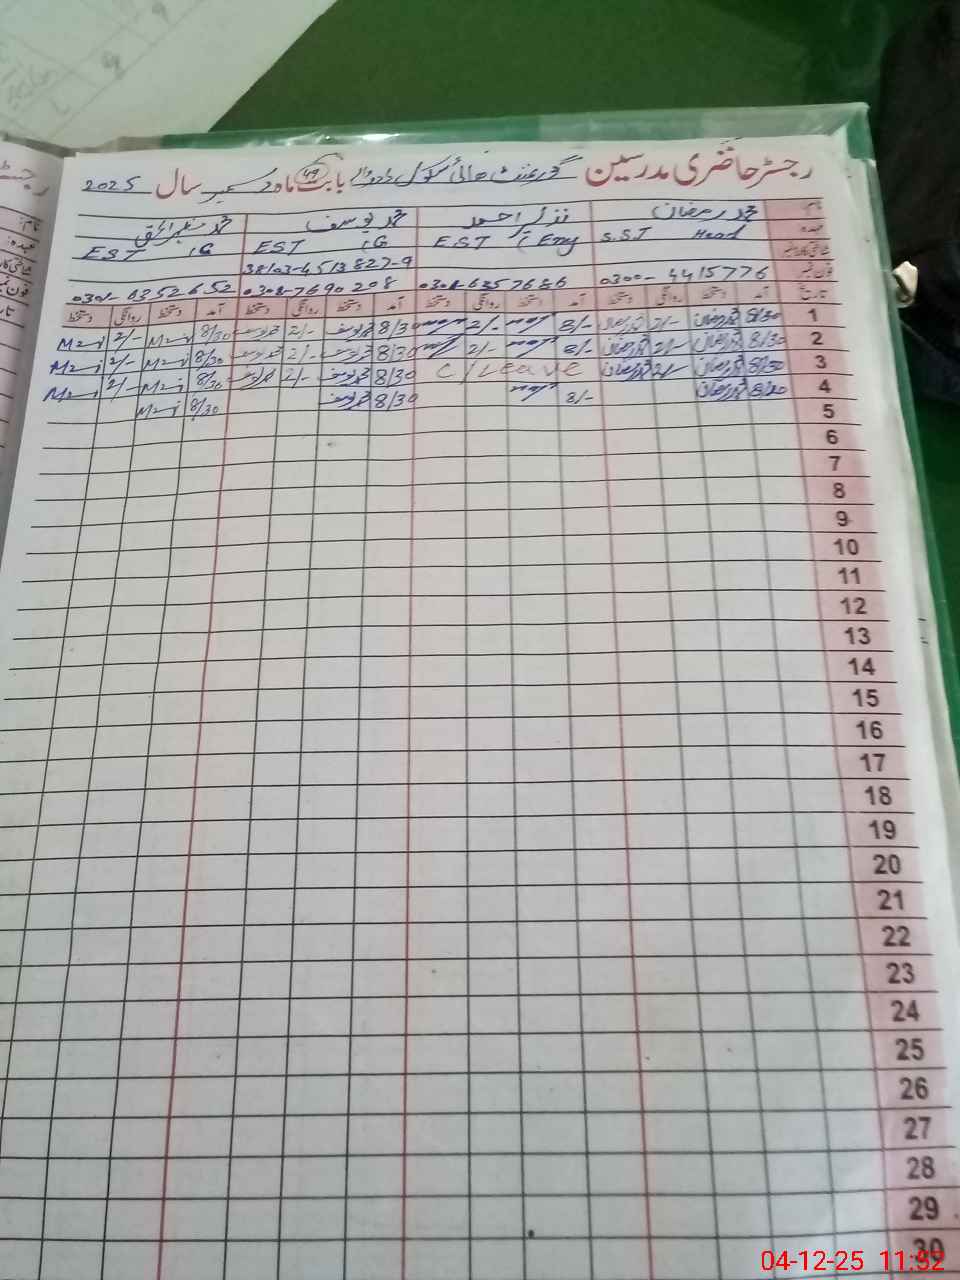 رجسٹر حاضری مدرسین گورنمنٹ ہائی سکول بابت ماہ دسمبر سال 2025
49
نام: محمد رمضان نذیر احمد محمد یوسف محمد
عہدہ S.S.T Head E.S.T Eng EST IG EST IG
شناختی کارڈ نمبر 38103-4513827-9
فون نمبر 0300-4415776 0301-6357636 0308-7690208 0301-6352652
تاریخ آمد دستخط روانگی دستخط آمد دستخط روانگی دستخط آمد دستخط روانگی دستخط آمد دستخط روانگی دستخط
1 8/30 محمد رمضان 2/- محمد رمضان 8/- 2/- 8/30 محمد یوسف 2/- محمد یوسف 8/30 2/-
2 8/30 محمد رمضان 2/- محمد رمضان 8/- 2/- 8/30 محمد یوسف 2/- محمد یوسف 8/30 2/-
3 8/30 محمد رمضان 2/- محمد رمضان C/Leave 8/30 محمد یوسف 2/- محمد یوسف 8/30 2/-
4 8/30 محمد رمضان 8/- 8/30 محمد یوسف 8/30
5
6
7
8
9
10
11
12
13
14
15
16
17
18
19
20
21
22
23
24
25
26
27
28
29
30
04-12-25 11:52